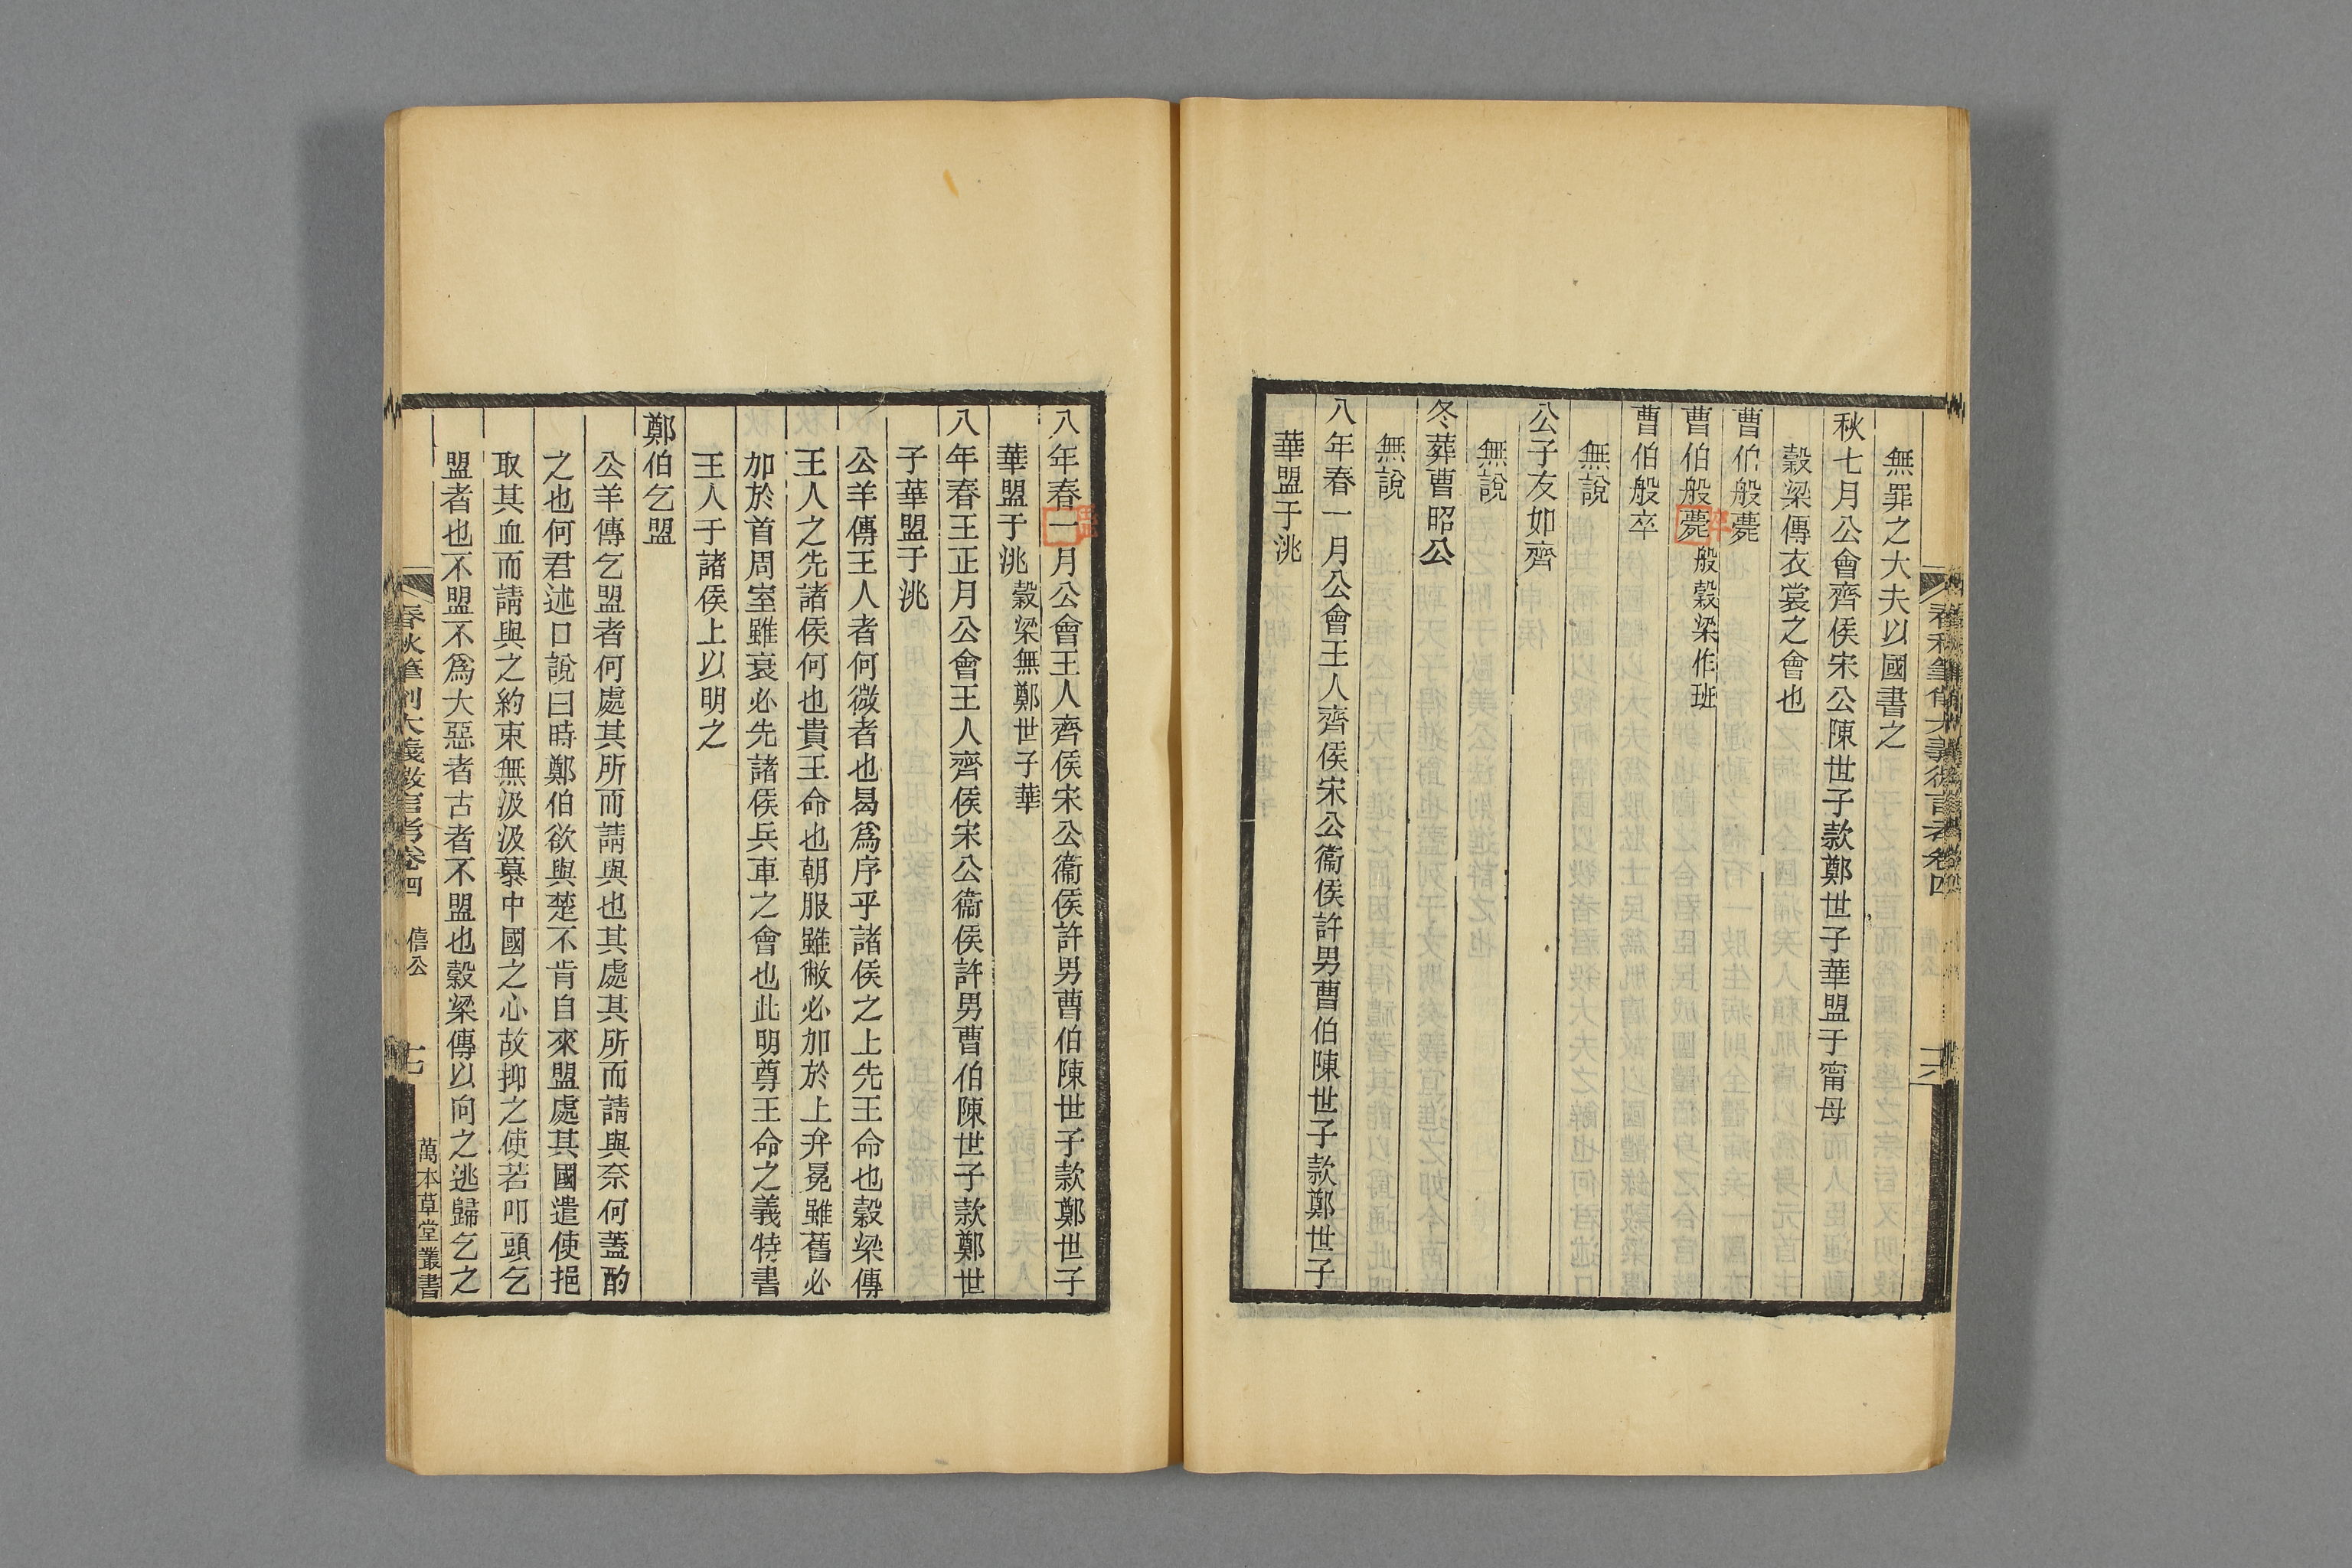 無罪之大夫以國書之
秋七月公會齊侯宋公陳世子款鄭世子華盟于甯母
穀梁傳衣裳之會也
曹伯般薨
曹伯般薨卒般穀梁作班
曹伯般卒
無說
公子友如齊
無說
冬葬曹昭公
無說
八年春一月公會王人齊侯宋公衞侯許男曹伯陳世子款鄭世子
華盟于洮
八年春一月公會王人齊侯宋公衞侯許男曹伯陳世子款鄭世子
華盟于洮穀梁無鄭世子華
八年春王正月公會王人齊侯宋公衞侯許男曹伯陳世子款鄭世
子華盟于洮
公羊傳王人者何微者也曷爲序乎諸侯之上先王命也穀梁傳
王人之先諸侯何也貴王命也朝服雖敝必加於上弁冕雖舊必
加於首周室雖衰必先諸侯兵車之會也此明尊王命之義特書
王人于諸侯上以明之
鄭伯乞盟
公羊傳乞盟者何處其所而請與也其處其所而請與奈何蓋酌
之也何君述口說曰時鄭伯欲與楚不肯自來盟處其國遣使挹
取其血而請與之約束無汲汲慕中國之心故抑之使若叩頭乞
盟者也不盟不爲大惡者古者不盟也穀梁傳以向之逃歸乞之
春秋筆削大義微言考卷四 僖公 十七 萬木草堂叢書